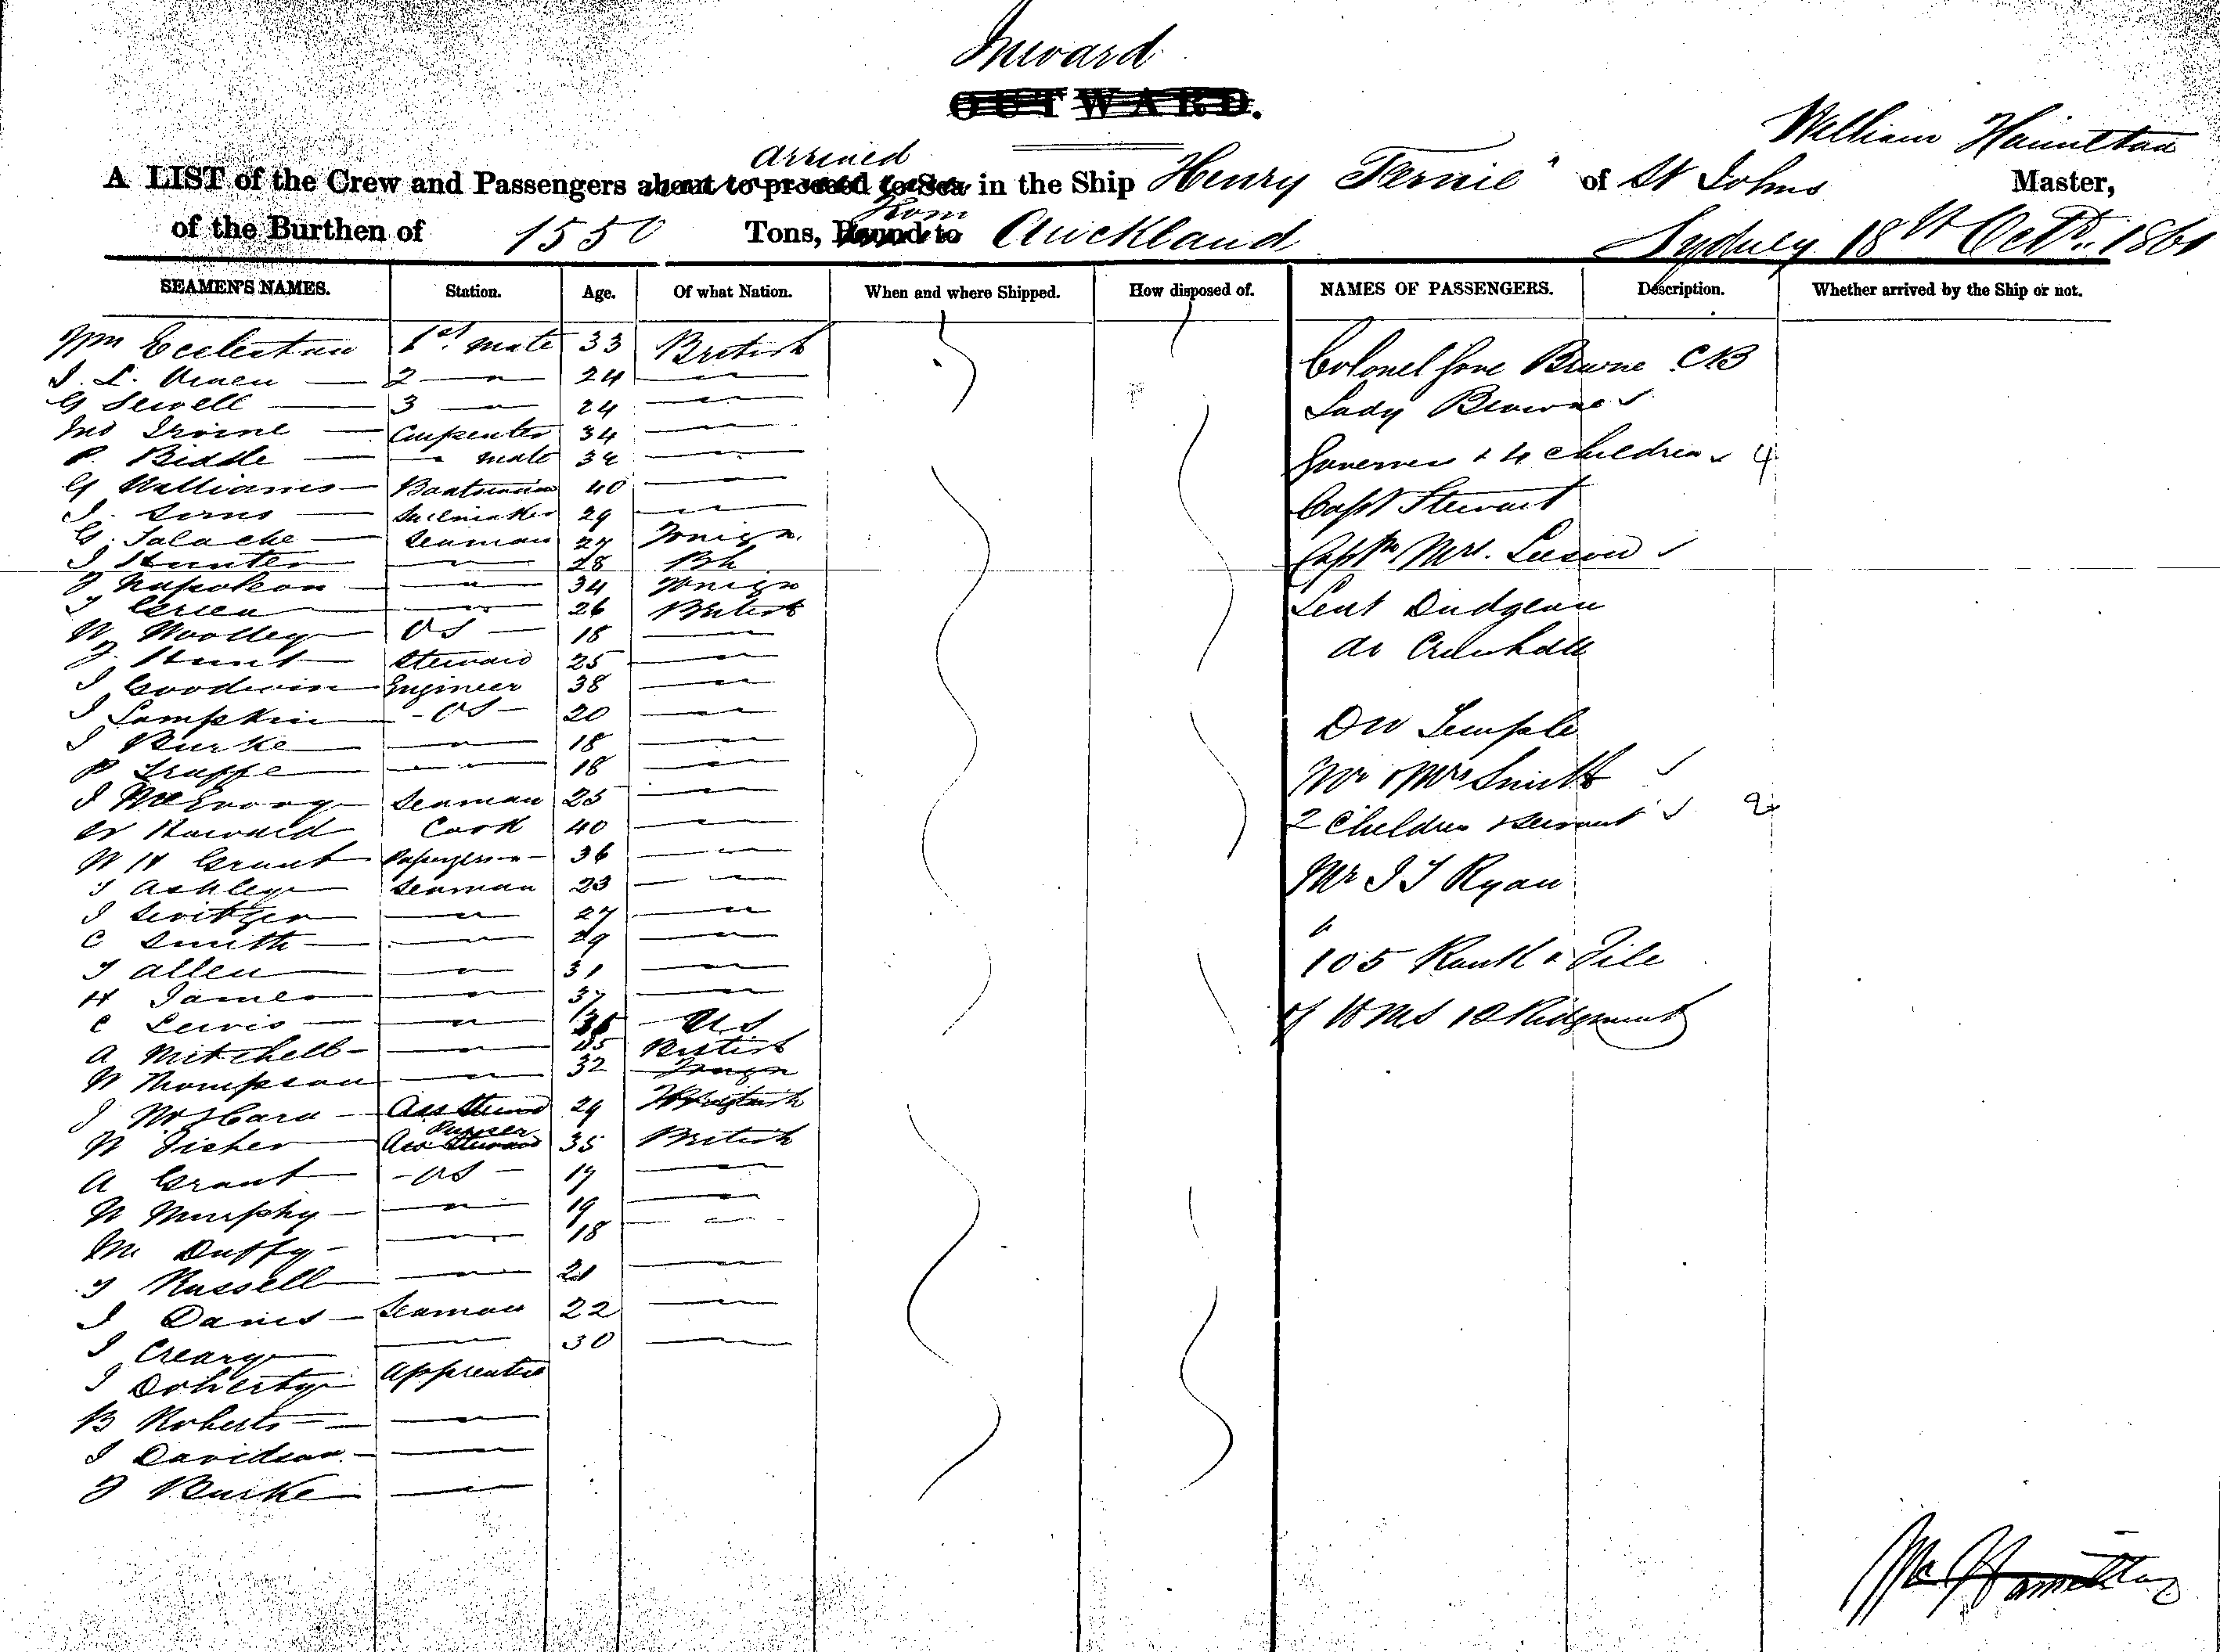 Inward
OUTWARD.
William Hamilton
arrived
A LIST of the Crew and Passengers about to proceed to Sea in the Ship Henry Fernie" of St Johns Master,
from
of the Burthen of 1550 Tons, Bound to Auckland Sydney 18th Octr. 1861
SEAMEN'S NAMES. Station. Age. Of what Nation. When and where Shipped. How disposed of. NAMES OF PASSENGERS. Description. Whether arrived by the Ship or not.
Wm Eccleston 1st mate 33 British
J. L. 2 — " 24 — "
G Sewell — 3 — " 24 — "
Jno Irvine — Carpenter 34 — "
P. Biddle — " mate 34 — "
G Williams — Boatswain 40 — "
J. — Sailmaker 29 — "
G. Salache — Seaman 27 Foreign
J Hunter — " 28 Bh
J Napoleon — " 34 Foreign
J Green — " 26 British
W Woolley — OS — 18 — "
J. Hunt — Steward 25 — "
J Goodwin — Engineer 38 — "
J Lampkin — OS — 20 — "
J Burke — " 18 — "
P Trappe — " 18 — "
J McEvoy — Seaman 25 — "
W Howard Cook 40 — "
W H Grant — 36 — "
J Ashley — Seaman 23 — "
J Switzer — " 27 — "
C Smith — " 29 — "
J Allen — " 31 — "
H James — " 37 — "
C Lewis — " US
A Mitchell — " British
W Thompson — " 32 Foreign
J — Ass Steward 29
Purser
W Fisher — Ass Steward 35 British
A Grant — OS — 17 — "
W Murphy — " 19 — "
M Duffy — " 18 — "
J Russell — " 21 — "
J Davis — Seaman 22 — "
J Creary — " 30 — "
J Doherty — Apprentice
B Roberts — "
J Davidson — "
J Burke — "
Colonel Gore Browne CB
Lady Browne
Governess & 4 children 4
Capt Stewart
Capt Mrs. Leeson
Leut Dudgeon
do
Dr Temple
Mr & Mrs Smith
2 Children & servant 2
Mr J T Ryan
105 Rank & File
of H M S 12 Ridgment
Wm Hamilton